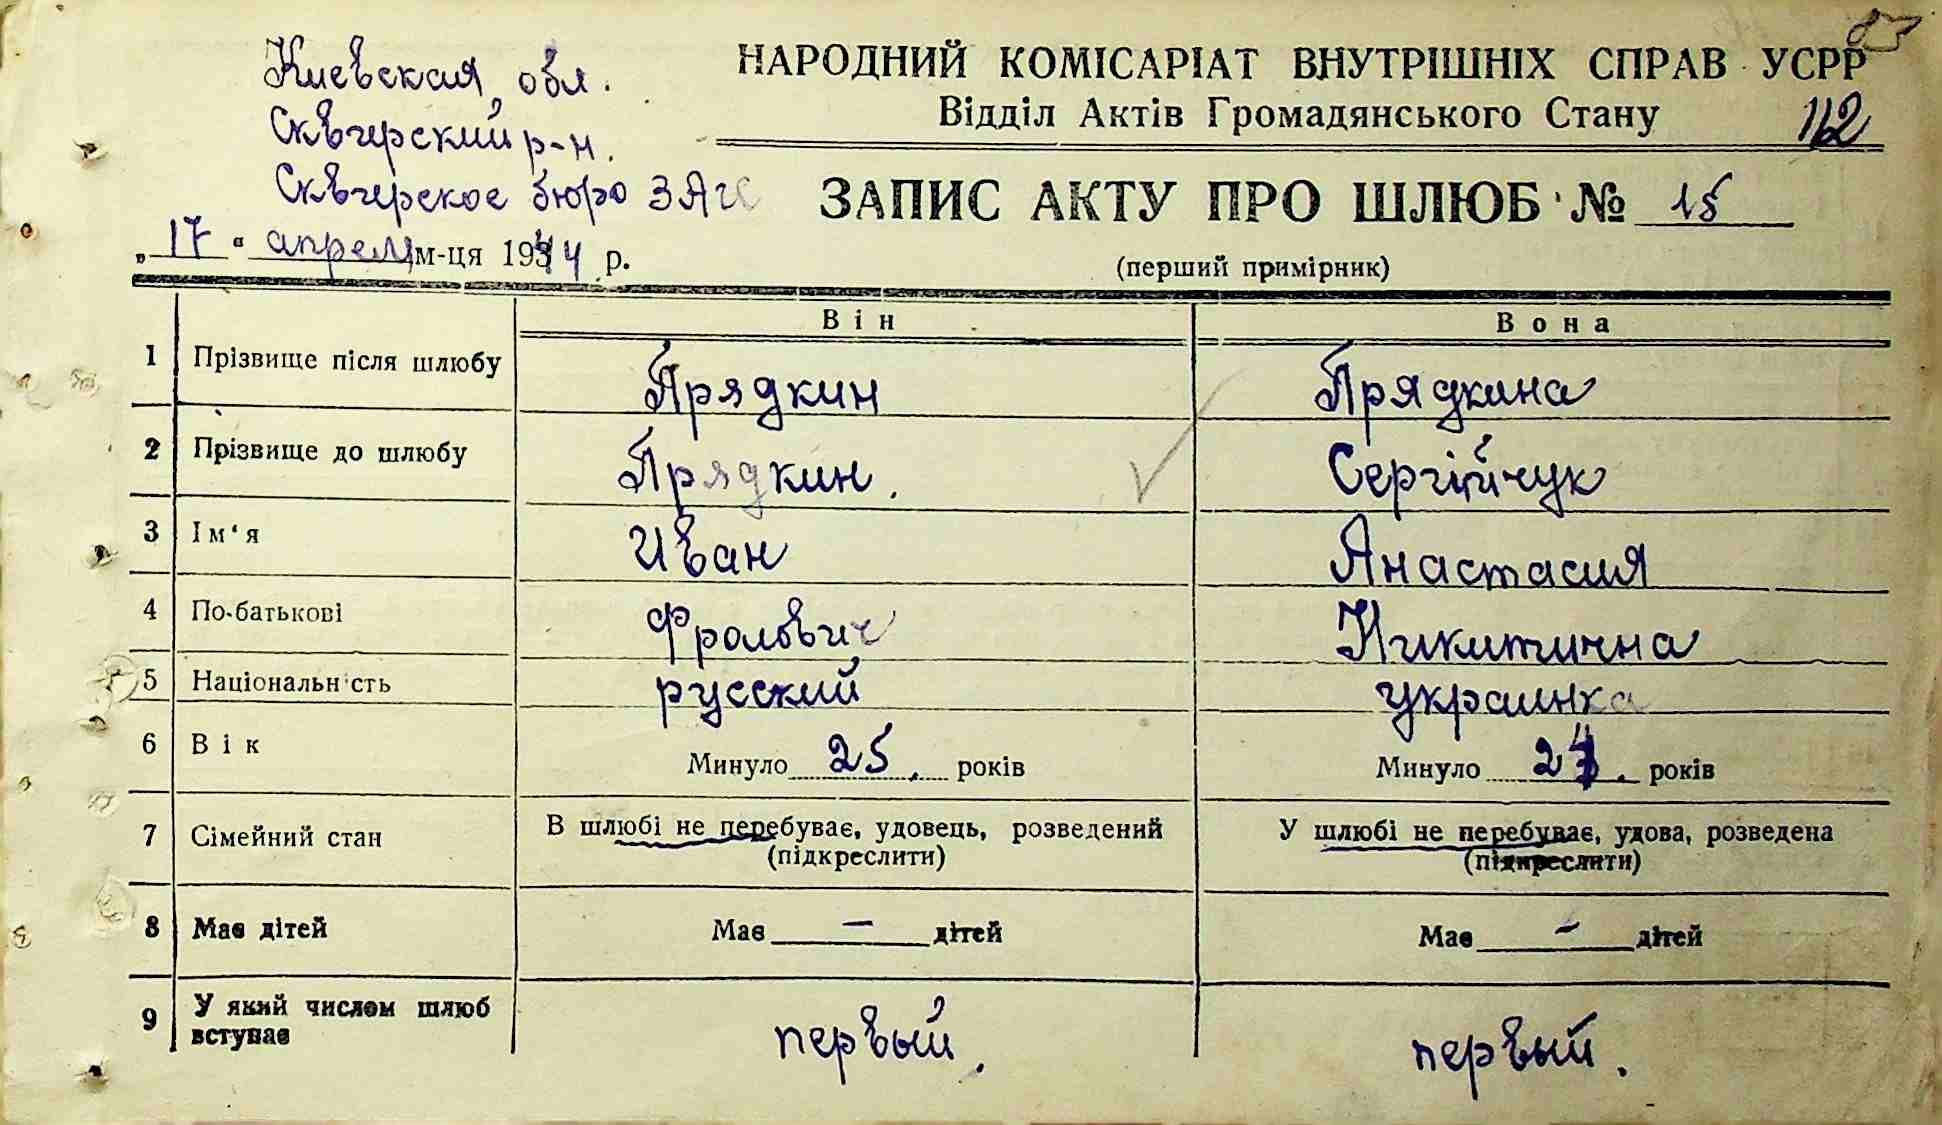 Киевская обл.
Сквирский р-н.
Сквирское бюро ЗАГС
„17“ апреля м-ця 1944 р.
НАРОДНИЙ КОМІСАРІАТ ВНУТРІШНІХ СПРАВ УСРР
Відділ Актів Громадянського Стану
112
ЗАПИС АКТУ ПРО ШЛЮБ № 15
(перший примірник)
Він Вона
1 Прізвище після шлюбу Прядкин Прядкина
2 Прізвище до шлюбу Прядкин. Сергійчук
3 Ім'я Иван Анастасия
4 По-батькові Фролович Никитична
5 Національність русский украинка
6 Вік Минуло 25. років Минуло 24. років
7 Сімейний стан В шлюбі не перебуває, удовець, розведений У шлюбі не перебуває, удова, розведена
(підкреслити) (підкреслити)
8 Має дітей Має — дітей Має — дітей
9 У який числом шлюб вступає первый. первый.